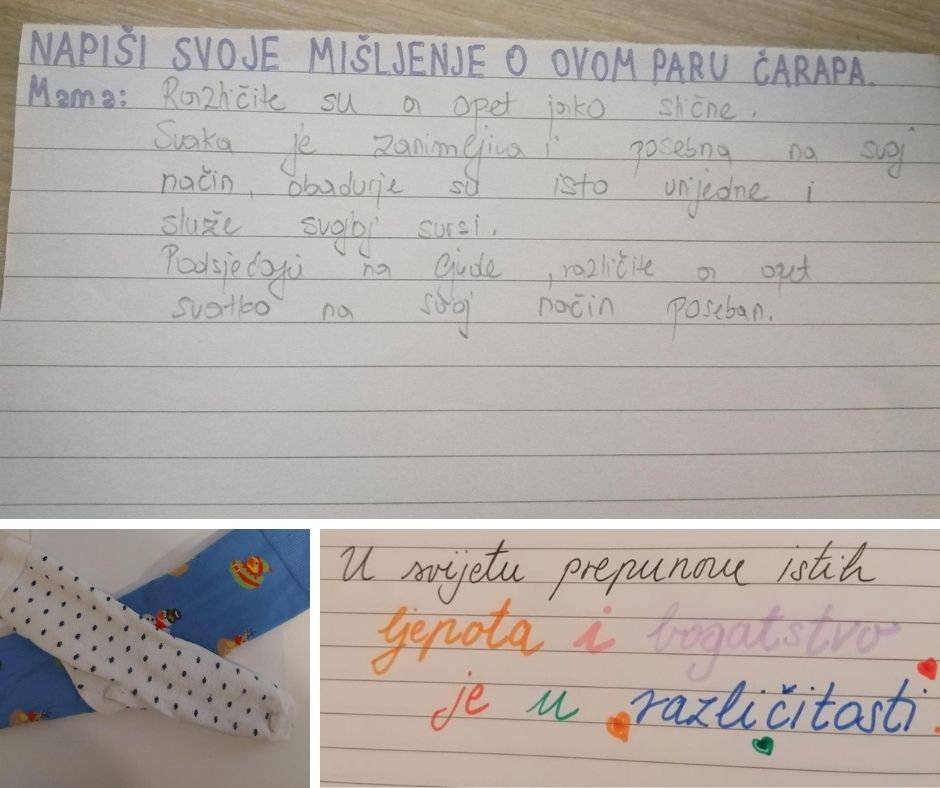 NAPIŠI SVOJE MIŠLJENJE O OVOM PARU ČARAPA.
Mama: Različite su a opet jako slične.
Svaka je zanimljiva i posebna na svoj
način, obadvije su isto vrijedne i
služe svojoj svrsi.
Podsjećaju na ljude, različite a opet
svatko na svoj način poseban.
U svijetu prepunome istih
ljepota i bogatstvo
je u različitosti.